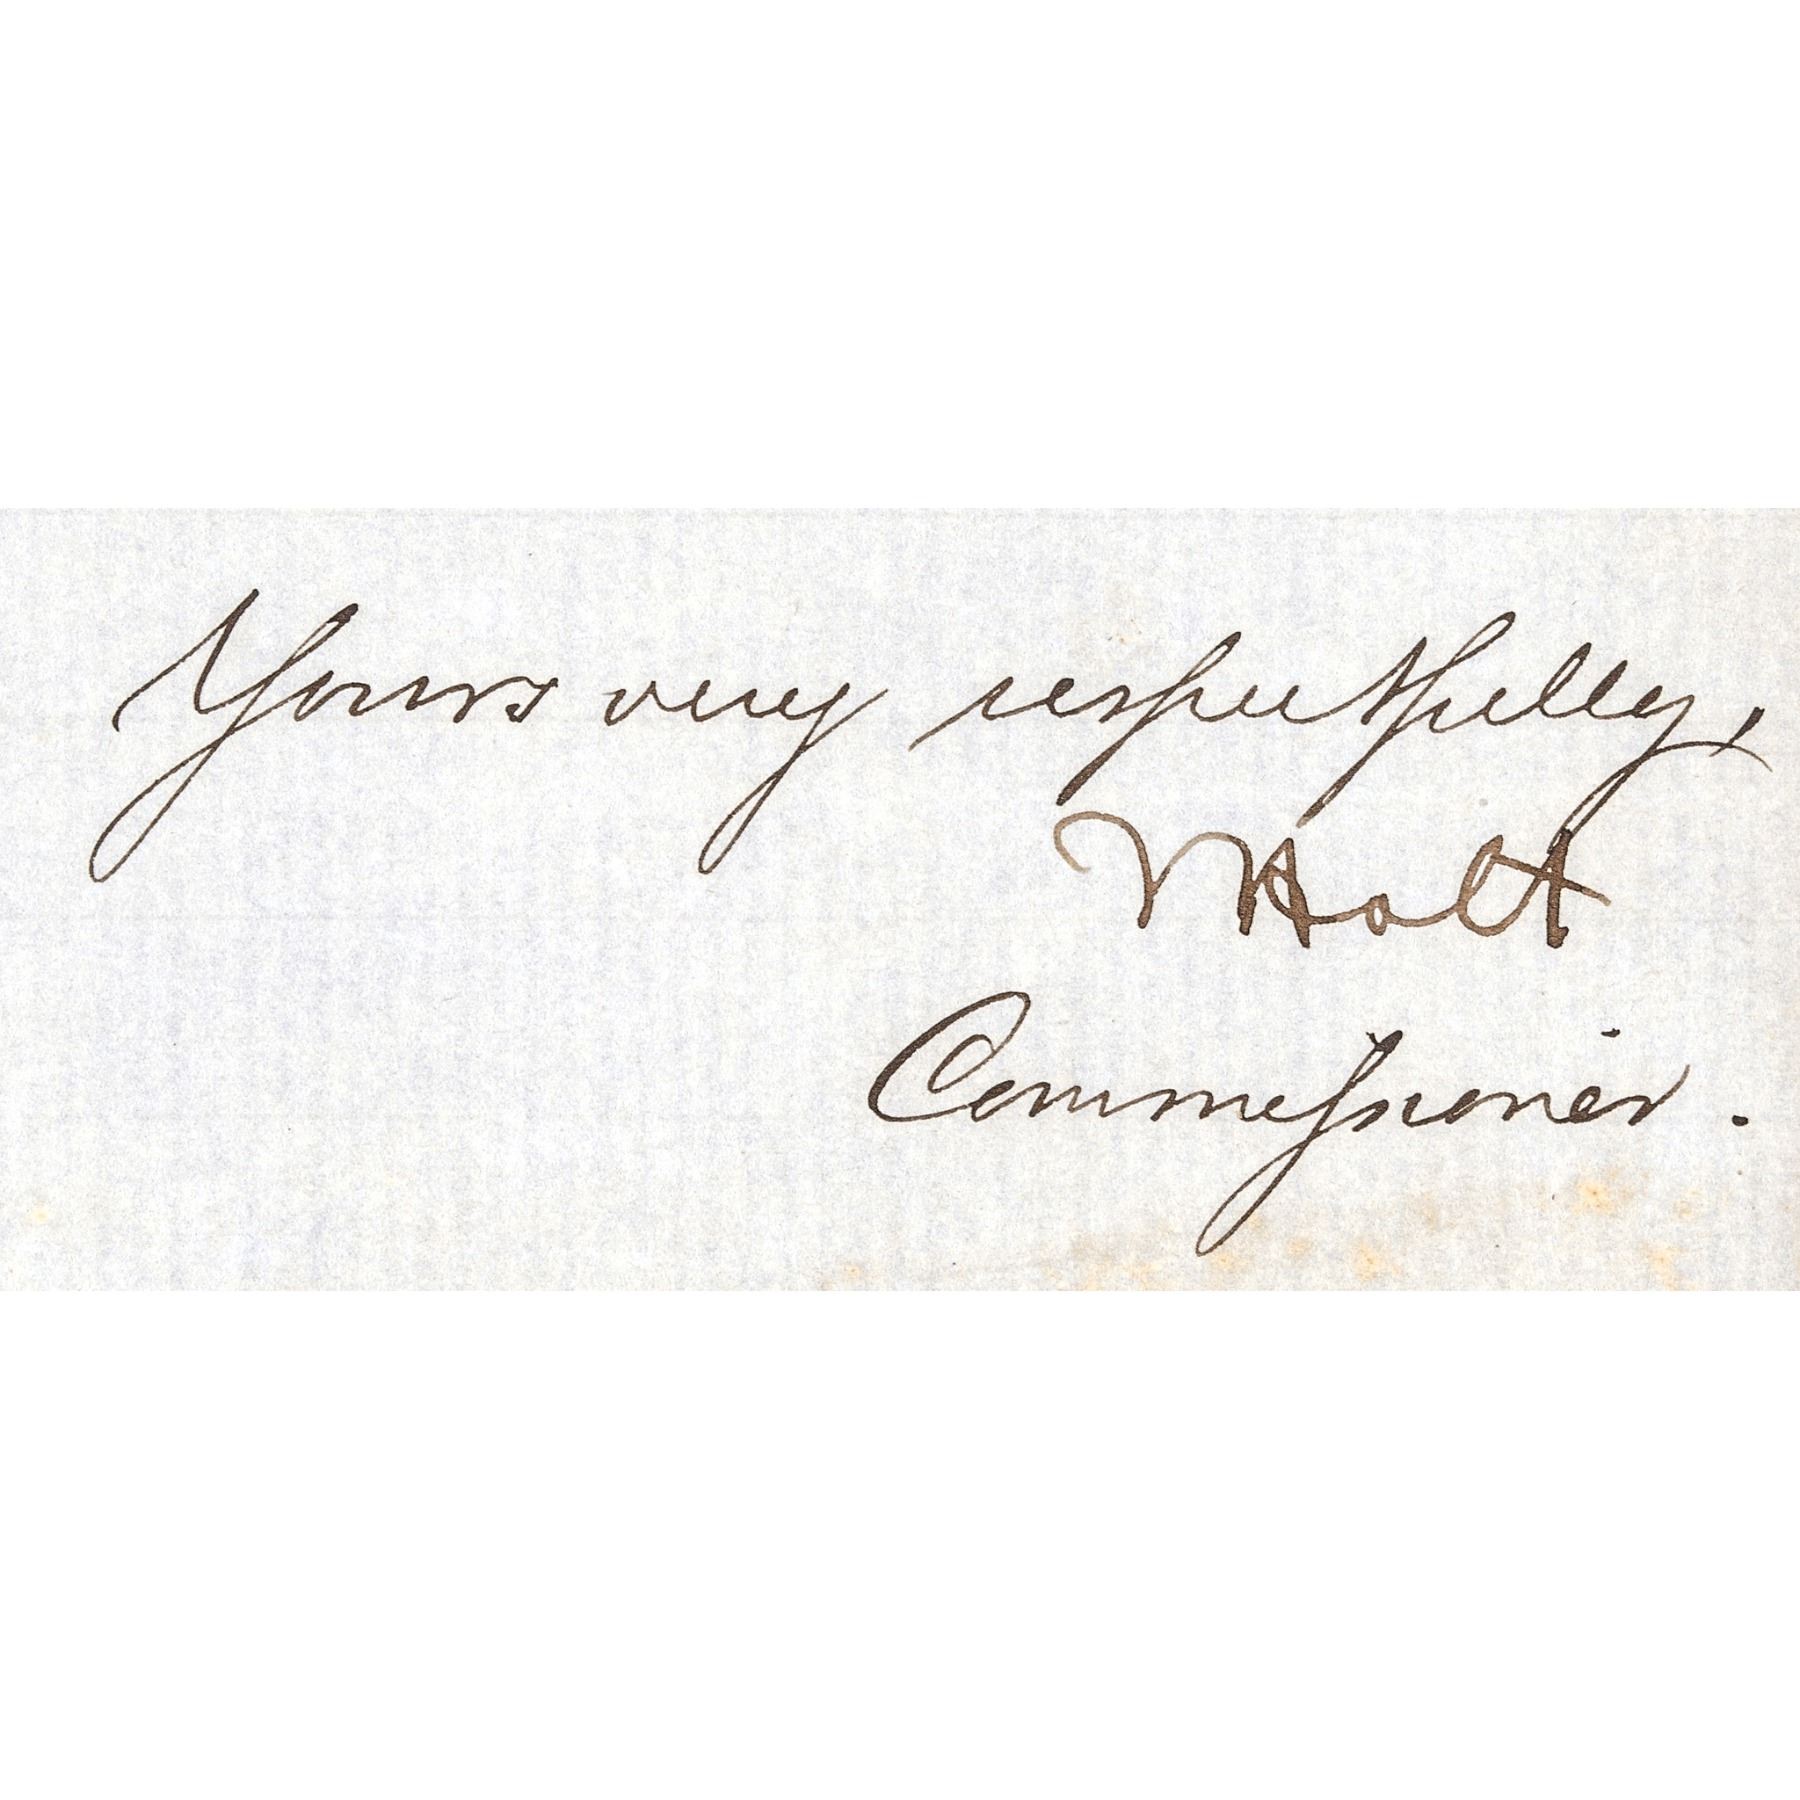 Yours very respectfully,
J Holt
Commissioner.